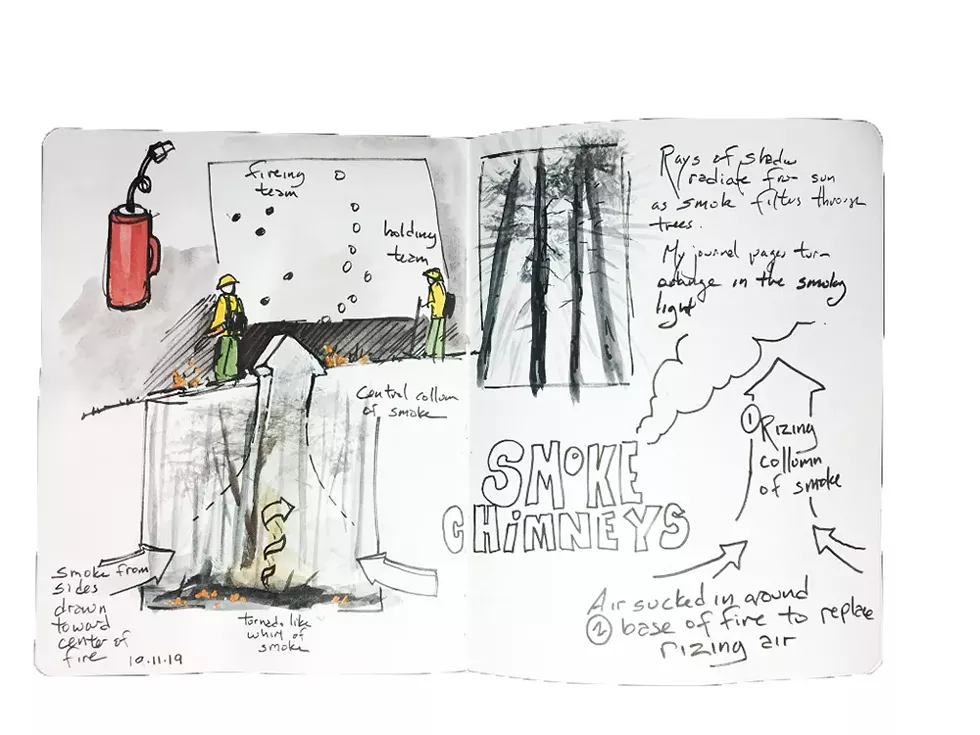 fireing
team
holding
team
central collum
of smoke
smoke from
sides
drawn
toward
center of
fire
10.11.19
tornado like
whirl of
smoke
Rays of shadow
radiate from sun
as smoke filters through
trees.
My journal pages turn
orange in the smokey
light
SMOKE
CHIMNEYS
① Rizing
collumn
of smoke
Air sucked in around
② base of fire to replace
rizing air